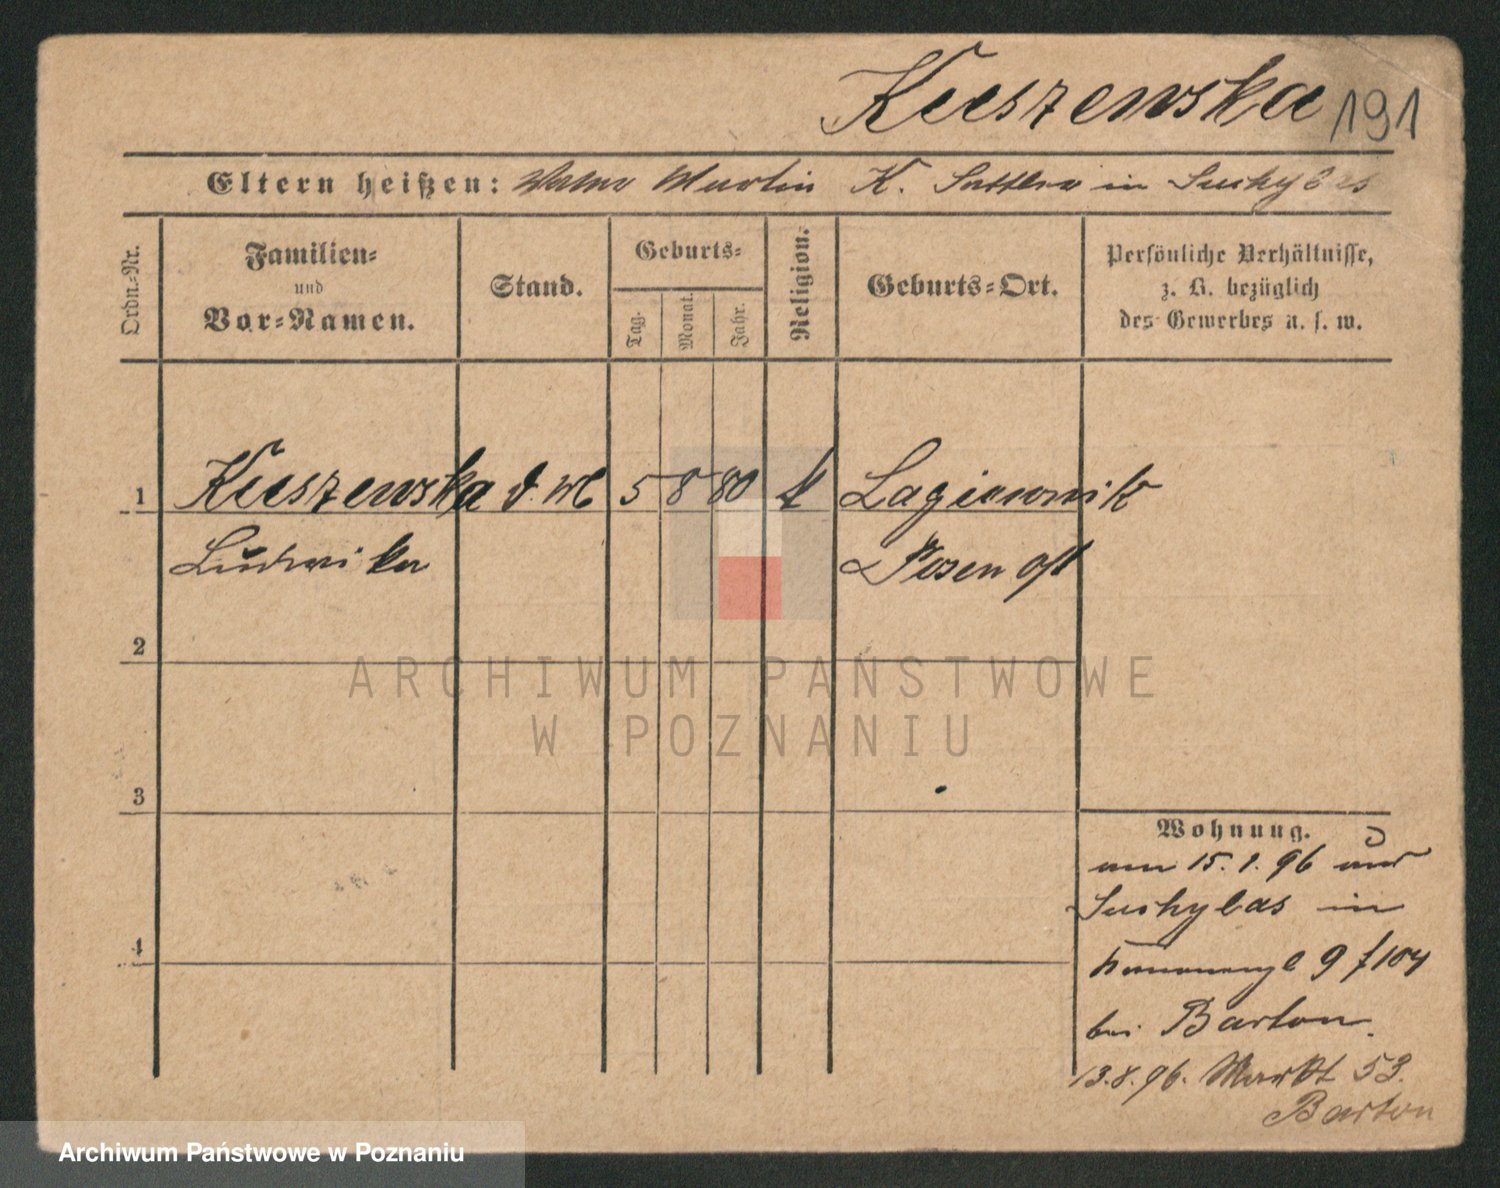 Kuszewska 191
Eltern heißen: Vater Martin K. Sattler in Suchylas
Ordn.-Nr.
Familien-
und
Vor-Namen.
Stand.
Geburts-
Tag.
Monat.
Jahr.
Religion.
Geburts-Ort.
Persönliche Verhältnisse,
z. B. bezüglich
des Gewerbes u. s. w.
1 Kuszewska d. 5 8 80 k Lagiewnik
Ludwika Posen Ost
2
3
4
ARCHIWUM PAŃSTWOWE
W POZNANIU
Wohnung.
am 15. 1. 96 aus
Suchylas in
9 f 104
bei Barton.
13.8.96. Markt 53.
Barton
Archiwum Państwowe w Poznaniu